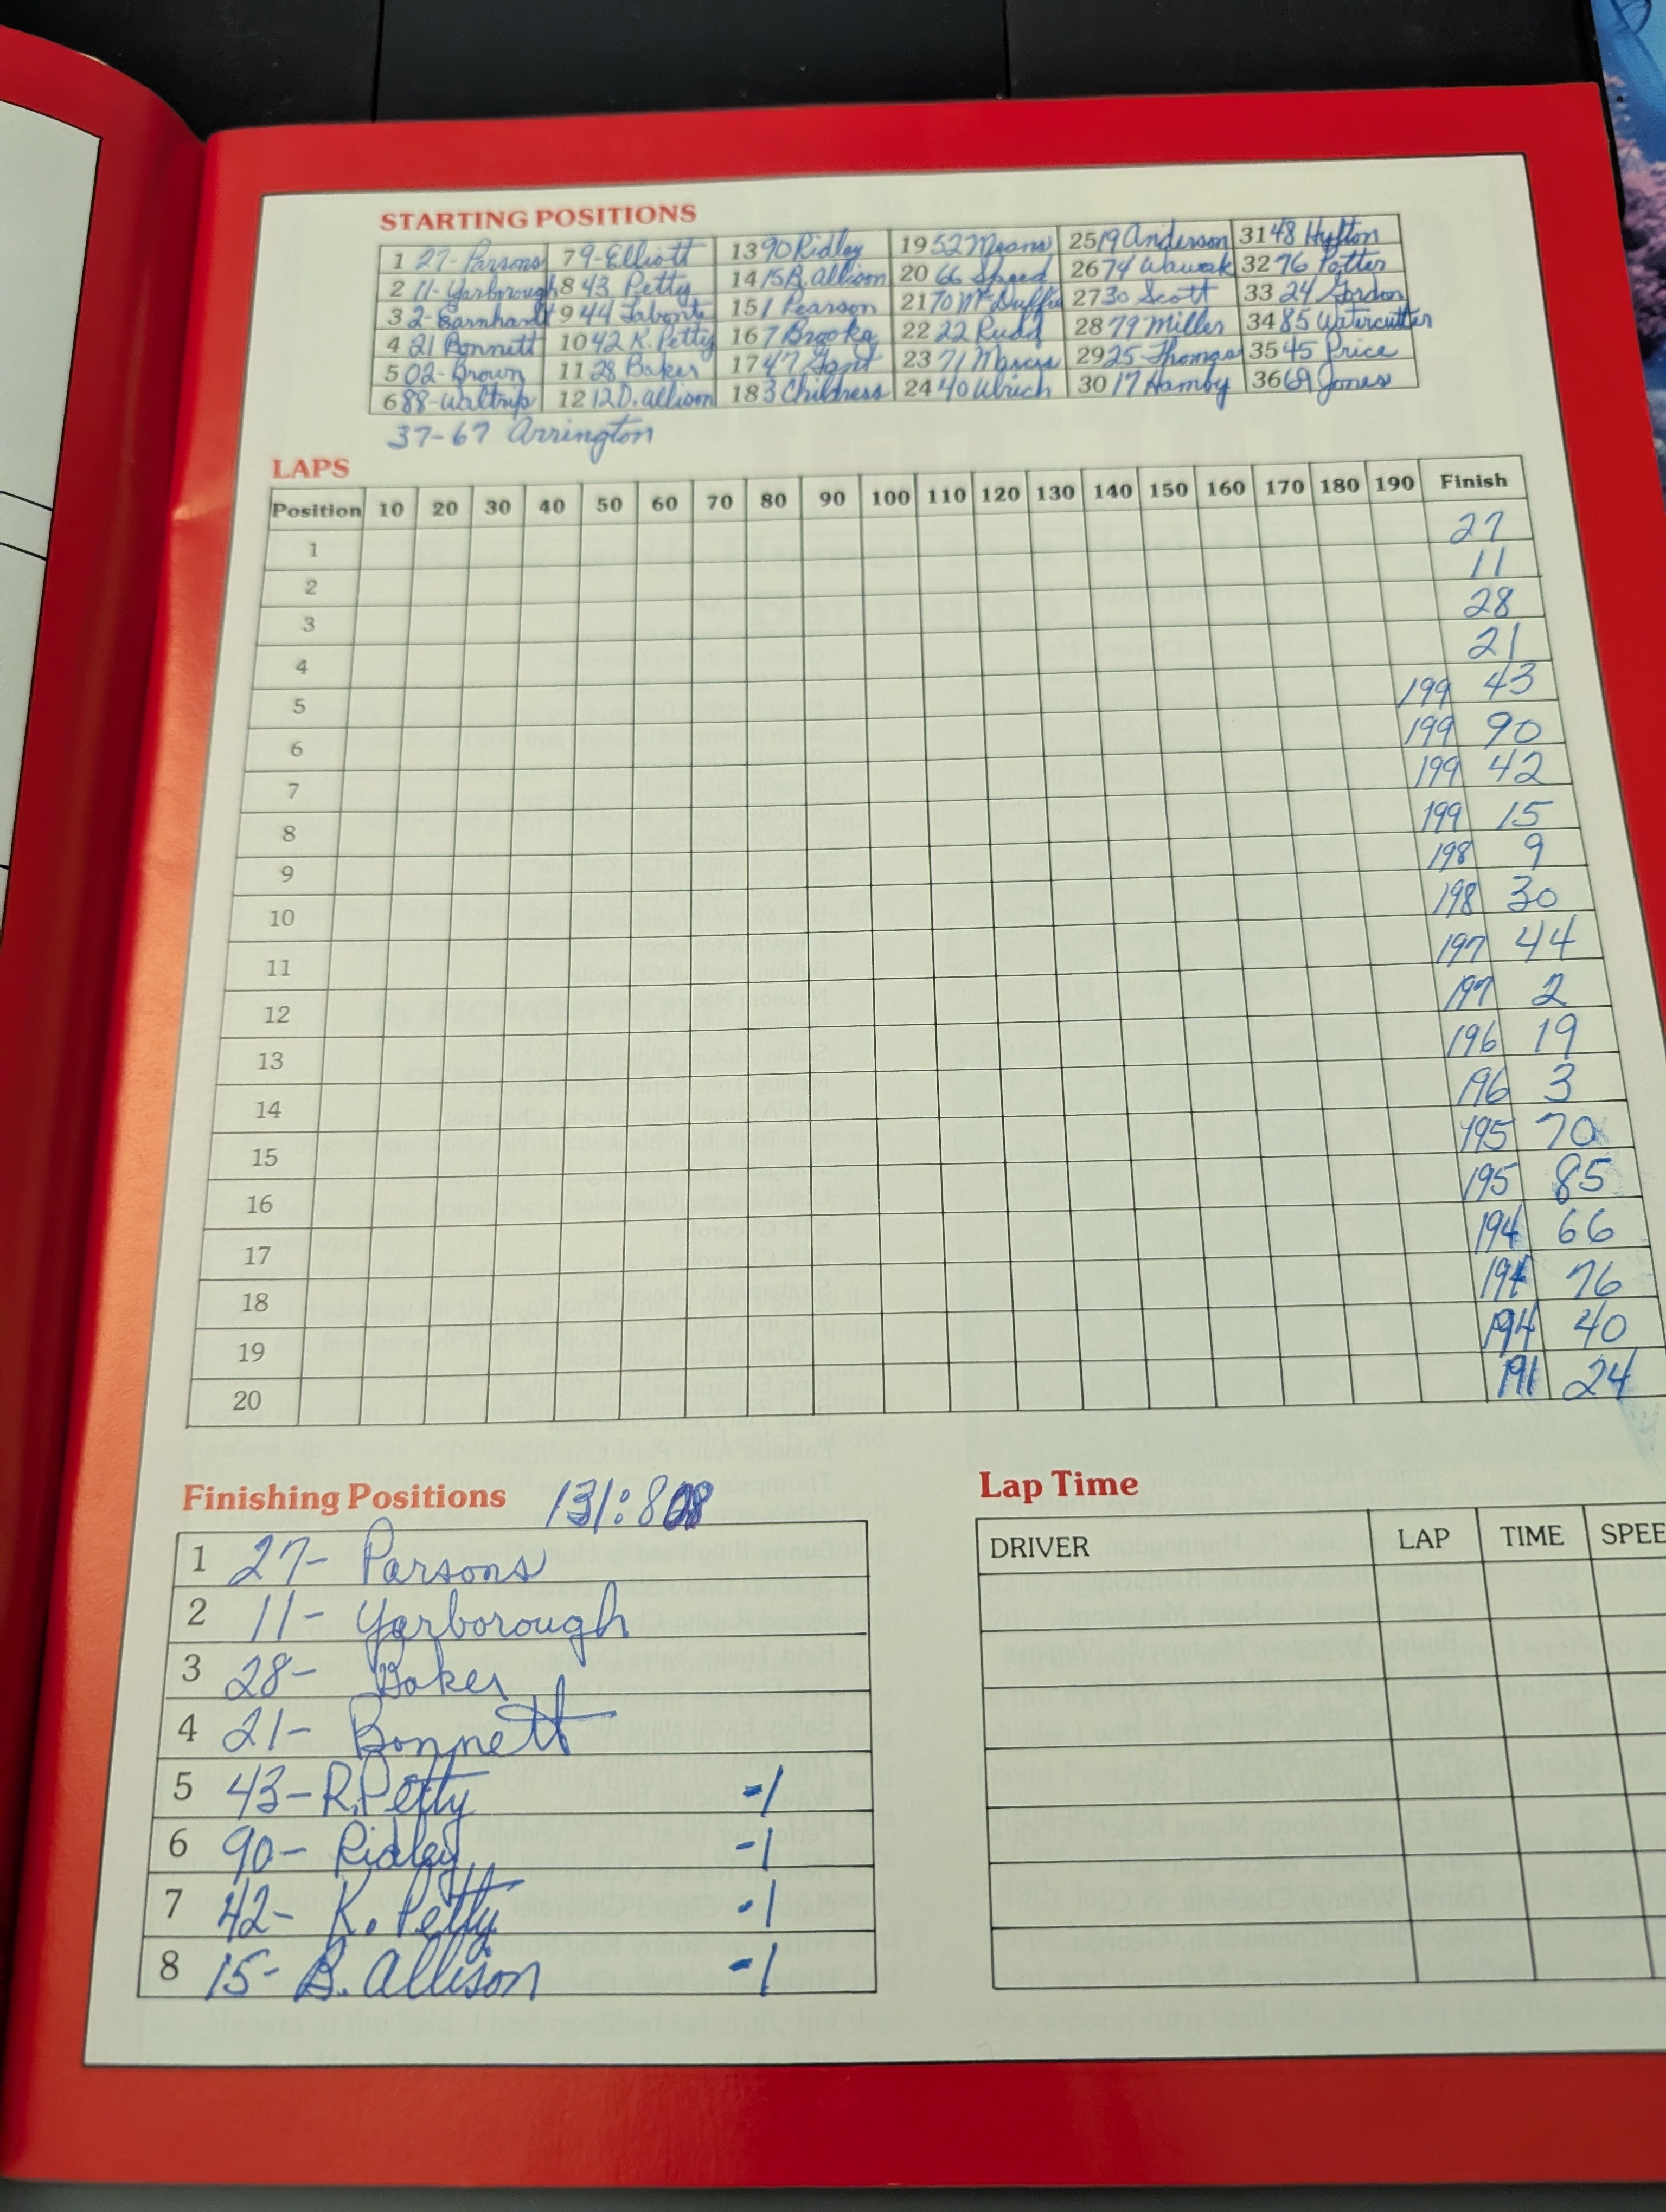 STARTING POSITIONS
1 27- Parsons 7 9-Elliott 13 90 Ridley 19 52 Means 25 19 Anderson 31 48 Hylton
2 11- Yarborough 8 43 Petty 14 15 B. Allison 20 66 Speed 26 74 Wawak 32 76 Potter
3 2- Earnhardt 9 44 Labonte 15 1 Pearson 21 70 McDuffie 27 30 Scott 33 24 Gordon
4 21 Bonnett 10 42 K. Petty 16 7 Brooks 22 22 Rudd 28 79 Miller 34 85 Watercutter
5 02- Brown 11 28 Baker 17 47 Gant 23 71 Marcis 29 25 Thomas 35 45 Price
6 88-Waltrip 12 12 D. Allison 18 3 Childress 24 40 Ulrich 30 17 Hamby 36 69 Jones
37-67 Arrington
LAPS
Position 10 20 30 40 50 60 70 80 90 100 110 120 130 140 150 160 170 180 190 Finish
1 27
2 11
3 28
4 21
5 199 43
6 199 90
7 199 42
8 199 15
9 198 9
10 198 30
11 197 44
12 197 2
13 196 19
14 196 3
15 195 70
16 195 85
17 194 66
18 194 76
19 194 40
20 191 24
Finishing Positions 131:808
1 27- Parsons
2 11- Yarborough
3 28- Baker
4 21- Bonnett
5 43- R. Petty -1
6 90- Ridley -1
7 42- K. Petty -1
8 15- B. Allison -1
Lap Time
DRIVER LAP TIME SPEE